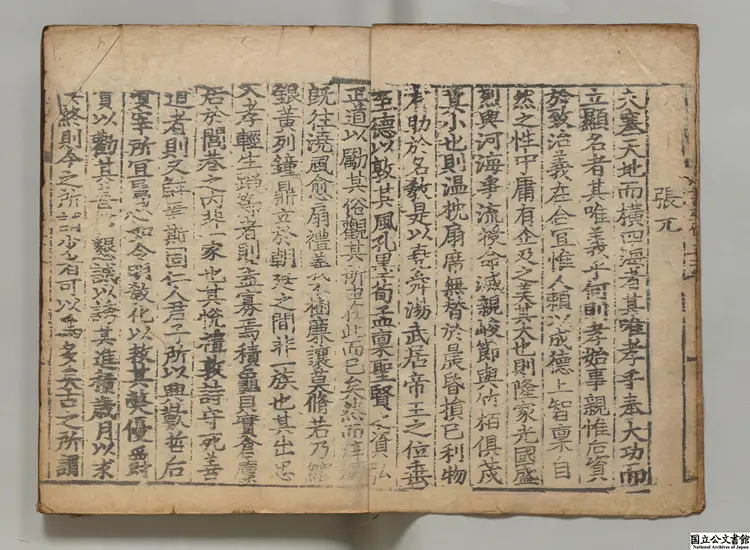 張元
夫塞天地而橫四海者其唯孝乎奉大功而
立顯名者其唯義乎何則孝始事親惟后資
於致治義在合宜惟人賴以成德上智稟自
然之性中庸有企及之美其大也則隆家光國盛
烈與河海爭流授命滅親峻節與竹栢俱茂
其小也則温枕扇席無替於晨昏損已利物
有助於名教是以堯舜湯武居帝王之位垂
至德以敦其風孔墨荀孟稟聖賢之資弘
正道以勵其俗觀其所由在此而已矣然而淳
既往澆風愈扇禮義不樹廉讓莫脩若乃綰
銀黄列鐘鼎立於朝廷之間非一族也其出忠
入孝輕生蹈節者則盖寡焉積龜貝實倉廩
居於閭巷之內非一家也其悅禮敦詩守死善
道者則又鮮焉斯固仁人君子所以興歎哲后
賢宰所宜屬心如令明教化以救其弊優爵
賞以勸其善懇誠以誘其進積歲月以求
其終則今之所謂少者可以為多矣古之所謂
国立公文書館
National Archives of Japan